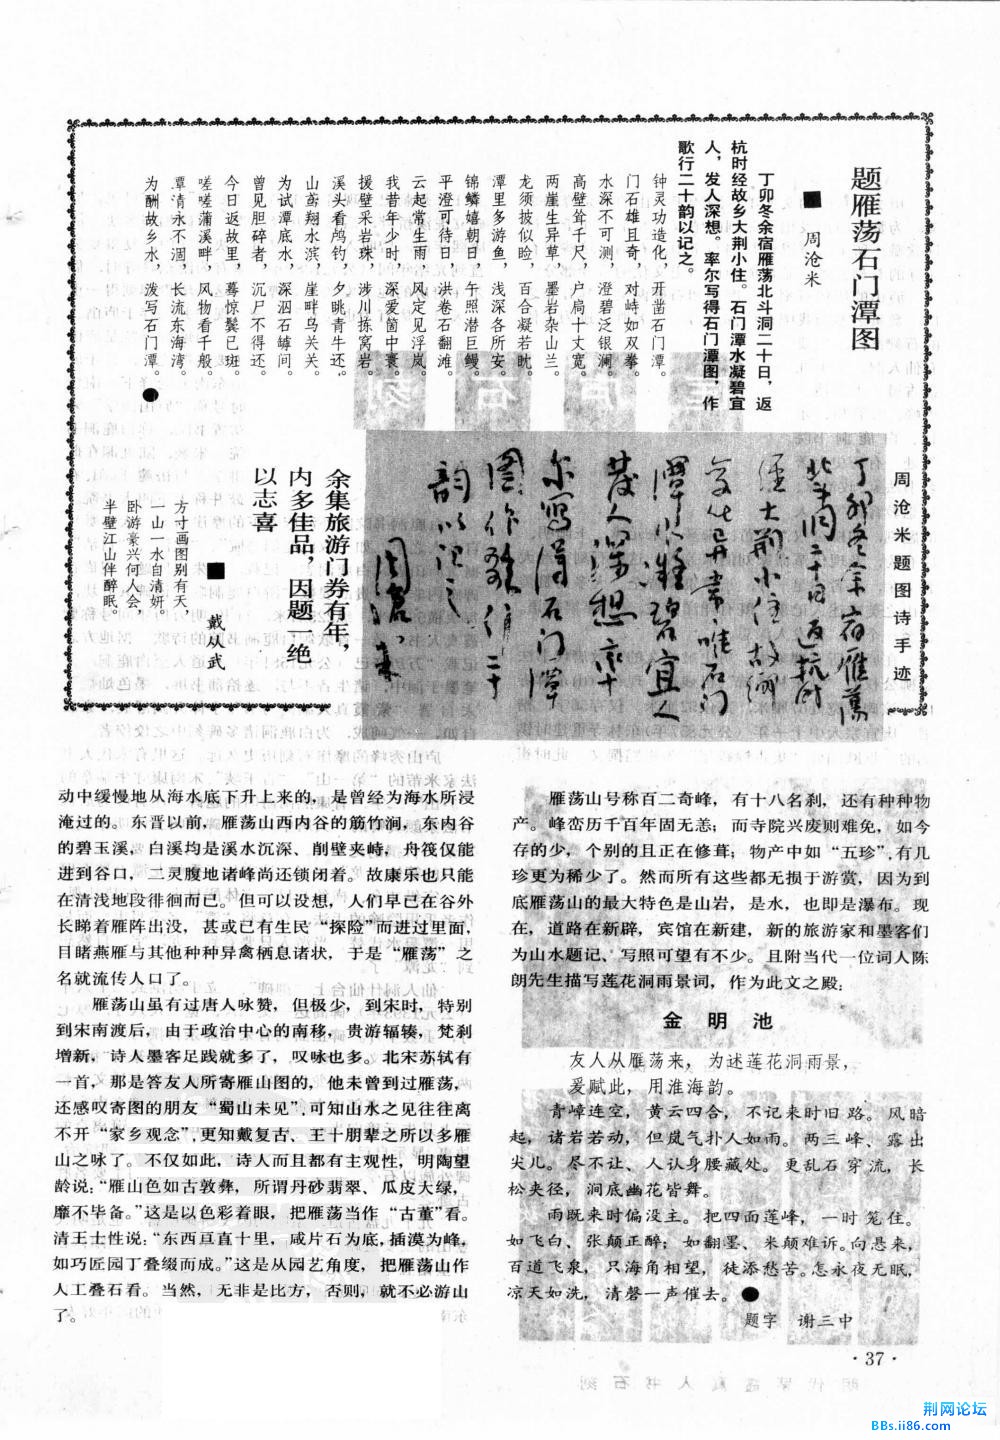 题雁荡石门潭图
■ 周沧米
丁卯冬余宿雁荡北斗洞二十日，返
杭时经故乡大荆小住。石门潭水凝碧宜
人，发人深想。率尔写得石门潭图，作
歌行二十韵以记之。
钟灵功造化，开凿石门潭。
门石雄且奇，对峙如双拳。
水深不可测，澄碧泛银澜。
高壁耸千尺，户局十丈宽。
两崖生异草，墨岩杂山兰。
龙须披似睑，百合凝若眈。
潭里多游鱼，浅深各所安。
锦鳞嬉朝日，午照潜巨鳗。
平澄可待日，洪卷石翻滩。
云起常生雨，风定见浮岚。
我昔年少时，深爱箇中寰。
援壁采岩珠，涉川拣窝岩。
溪头看鸬钓，夕眺青牛还。
山鸢翔水滨，崖畔乌关关。
为试潭底水，深泅石罅间。
曾见胆碎者，沉尸不得还。
今日返故里，蓦惊鬓已斑。
嗟嗟蒲溪畔，风物看千般。
潭清永不涸，长流东海湾。
为酬故乡水，泼写石门潭。●
周沧米题图诗手迹
丁卯冬余宿雁荡
北斗洞二十日返杭时
经大荆小住故乡
潭水凝碧宜人
发人深想率
尔写得石门潭
图作歌行二十
韵以记之
周沧米
余集旅游门券有年，
内多佳品，因题一绝
以志喜
■ 戴从武
方寸画图别有天，
一山一水自清妍。
卧游豪兴何人会，
半壁江山伴醉眠。
动中缓慢地从海水底下升上来的，是曾经为海水所浸
淹过的。东晋以前，雁荡山西内谷的筋竹涧，东内谷
的碧玉溪，白溪均是溪水沉深、削壁夹峙，舟筏仅能
进到谷口，二灵腹地诸峰尚还锁闭着。故康乐也只能
在清浅地段徘徊而已。但可以设想，人们早已在谷外
长睇着雁阵出没，甚或已有生民“探险”而进过里面，
目睹燕雁与其他种种异禽栖息诸状，于是“雁荡”之
名就流传人口了。
雁荡山虽有过唐人咏赞，但极少，到宋时，特别
到宋南渡后，由于政治中心的南移，贵游辐辏，梵刹
增新，诗人墨客足践就多了，叹咏也多。北宋苏轼有
一首，那是答友人所寄雁山图的，他未曾到过雁荡，
还感叹寄图的朋友“蜀山未见”，可知山水之见往往离
不开“家乡观念”，更知戴复古、王十朋辈之所以多雁
山之咏了。不仅如此，诗人而且都有主观性，明陶望
龄说：“雁山色如古敦彝，所谓丹砂翡翠、瓜皮大绿，
靡不毕备。”这是以色彩着眼，把雁荡当作“古董”看。
清王士性说：“东西亘直十里，咸片石为底，插漠为峰，
如巧匠园丁叠缀而成。”这是从园艺角度，把雁荡山作
人工叠石看。当然，无非是比方，否则，就不必游山
了。
雁荡山号称百二奇峰，有十八名刹，还有种种物
产。峰峦历千百年固无恙；而寺院兴废则难免，如今
存的少，个别的且正在修葺；物产中如“五珍”，有几
珍更为稀少了。然而所有这些都无损于游赏，因为到
底雁荡山的最大特色是山岩，是水，也即是瀑布。现
在，道路在新辟，宾馆在新建，新的旅游家和墨客们
为山水题记、写照可望有不少。且附当代一位词人陈
朗先生描写莲花洞雨景词，作为此文之殿：
金明池
友人从雁荡来，为述莲花洞雨景，
爰赋此，用淮海韵。
青嶂连空，黄云四合，不记来时旧路。风暗
起，诸岩若动，但岚气扑人如雨。两三峰、露出
尖儿。尽不让、人认身腰藏处。更乱石穿流，长
松夹径，涧底幽花皆舞。
雨既来时偏没主。把四面莲峰，一时笼住。
如飞白、张颠正醉；如翻墨、米颠难诉。向悬来，
百道飞泉，只海角相望，徒添愁苦。怎永夜无眠，
凉天如洗，清磬一声催去。●
题字 谢三中
·37·
荆网论坛
BBs.ii86.com